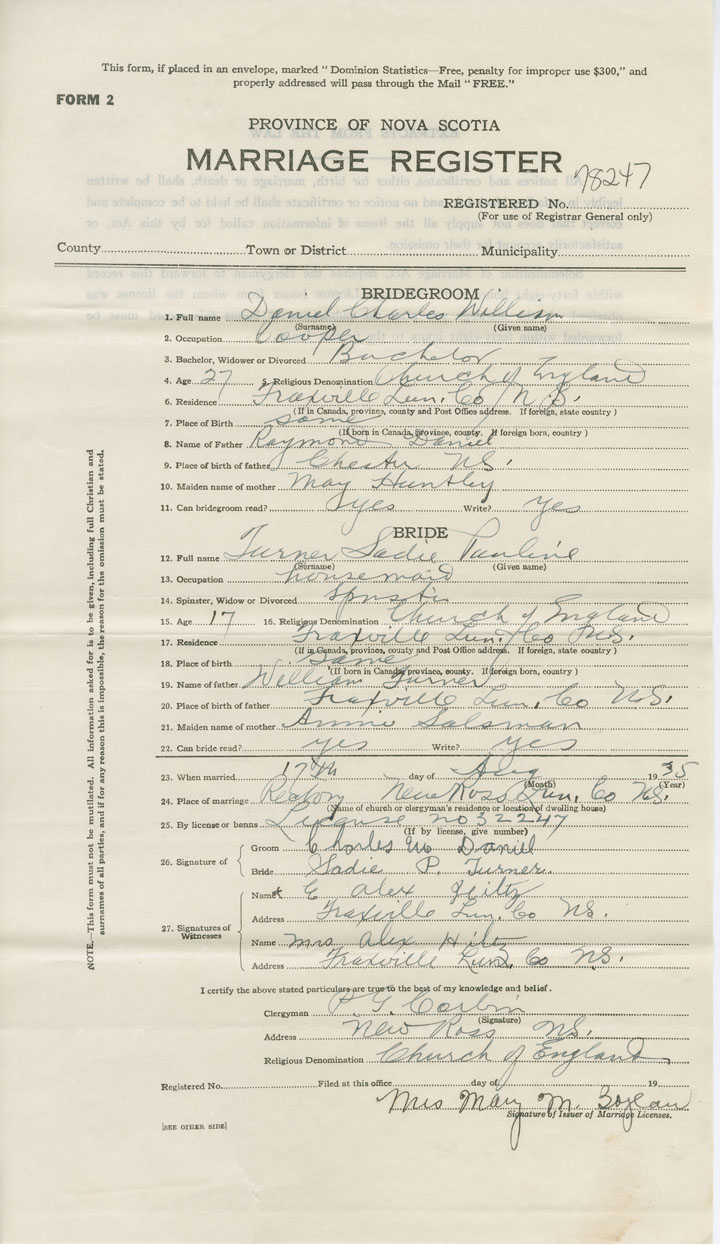 This form, if placed in an envelope, marked "Dominion Statistics—Free, penalty for improper use $300," and
properly addressed will pass through the Mail "FREE."
FORM 2
PROVINCE OF NOVA SCOTIA
MARRIAGE REGISTER
78247
REGISTERED No.
(For use of Registrar General only)
County Town or District Municipality
BRIDEGROOM
1. Full name Daniel Charles William
(Surname) (Given name)
2. Occupation Cooper
3. Bachelor, Widower or Divorced Bachelor
4. Age 27 5. Religious Denomination Church of England
6. Residence Fraxville Lun. Co N.S.
(If in Canada, province, county and Post Office address. If foreign, state country)
7. Place of Birth same
(If born in Canada, province, county. If foreign born, country)
8. Name of Father Raymond Daniel
9. Place of birth of father Chester NS.
10. Maiden name of mother May Huntley
11. Can bridegroom read? yes Write? yes
BRIDE
12. Full name Turner Sadie Pauline
(Surname) (Given name)
13. Occupation housemaid
14. Spinster, Widow or Divorced
15. Age 17 16. Religious Denomination Church of England
17. Residence Fraxville Lun. Co NS.
(If in Canada, province, county and Post Office address. If foreign, state country)
18. Place of birth same
(If born in Canada, province, county. If foreign born, country)
19. Name of father William Turner
20. Place of birth of father Fraxville Lun. Co NS.
21. Maiden name of mother Annie Salsman
22. Can bride read? yes Write? yes
23. When married 17th day of Aug 1935
(Month) (Year)
24. Place of marriage Rectory New Ross Lun. Co NS.
(Name of church or clergyman's residence or location of dwelling house)
25. By license or banns License no 32247
(If by license, give number)
26. Signature of Groom Charles W Daniel
Bride Sadie P. Turner.
27. Signatures of Witnesses
Name E Alex Hiltz
Address Fraxville Lun. Co NS.
Name Mrs Alex Hiltz
Address Fraxville Lun. Co NS.
I certify the above stated particulars are true to the best of my knowledge and belief.
Clergyman Corbin
(Signature)
Address New Ross NS.
Religious Denomination Church of England
Registered No. Filed at this office day of 19
Mrs Mary M.
Signature of Issuer of Marriage Licenses.
[SEE OTHER SIDE]
NOTE.—This form must not be mutilated. All information asked for is to be given, including full Christian and
surnames of all parties, and if for any reason this is impossible, the reason for the omission must be stated.